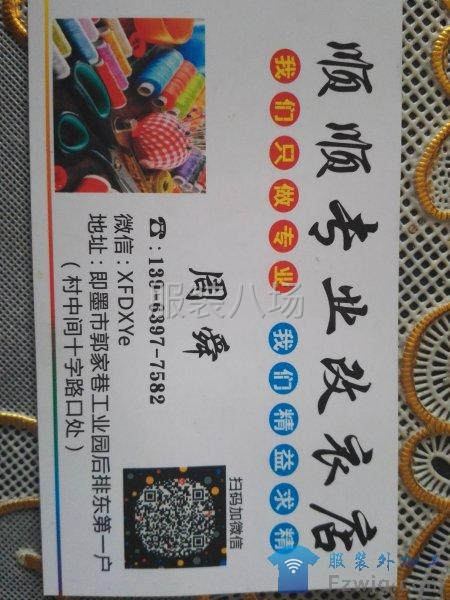 顺顺专业改衣店
我们只做专业 我们精益求精
周舜
☎:139-6397-7582
微信:XFDXYe
地址:即墨市郭家巷工业园后排东第一户
(村中间十字路口处)
扫码加微信
服装八场
服装外